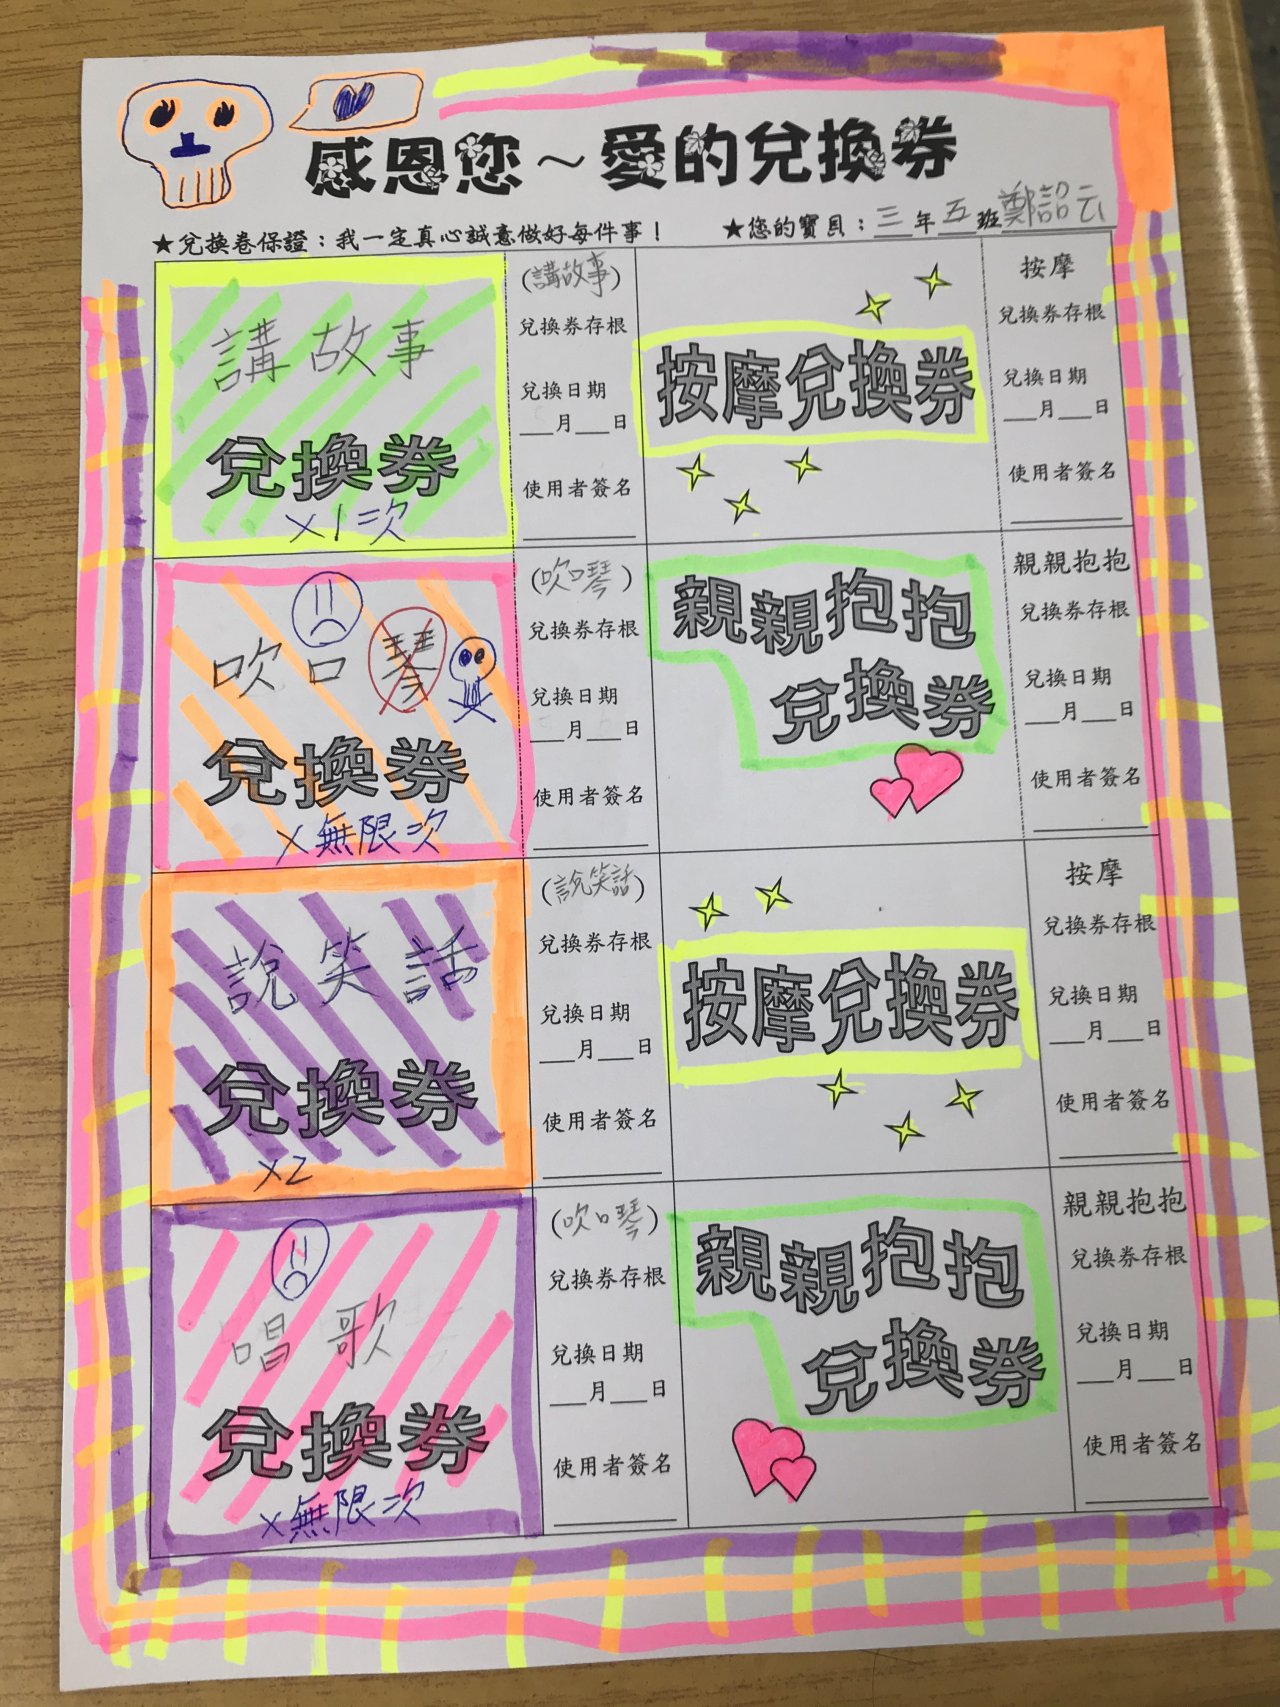 感恩您～愛的兌換券
★兌換卷保證：我一定真心誠意做好每件事！ ★您的寶貝：三年五班鄭詔云
講故事
兌換券
×1次
(講故事)
兌換券存根
兌換日期
__月__日
使用者簽名
按摩兌換券
按摩
兌換券存根
兌換日期
__月__日
使用者簽名
吹口琴
兌換券
×無限次
(吹口琴)
兌換券存根
兌換日期
__月__日
使用者簽名
親親抱抱
兌換券
親親抱抱
兌換券存根
兌換日期
__月__日
使用者簽名
說笑話
兌換券
×2
(說笑話)
兌換券存根
兌換日期
__月__日
使用者簽名
按摩兌換券
按摩
兌換券存根
兌換日期
__月__日
使用者簽名
唱歌
兌換券
×無限次
(吹口琴)
兌換券存根
兌換日期
__月__日
使用者簽名
親親抱抱
兌換券
親親抱抱
兌換券存根
兌換日期
__月__日
使用者簽名